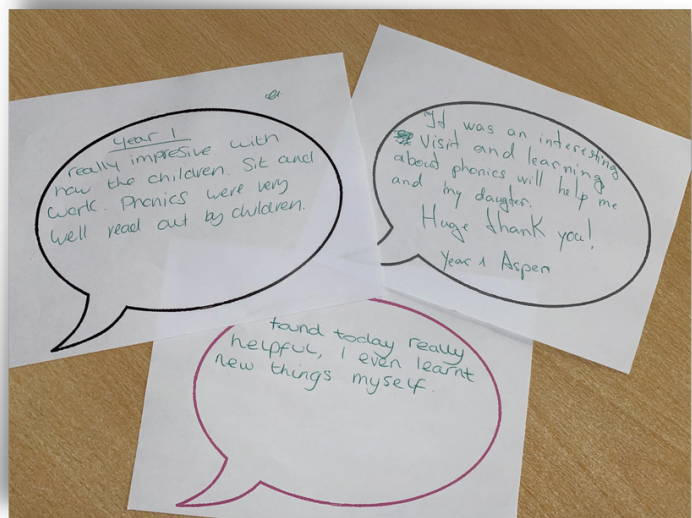 Year 1
really impresive with
how the children. Sit and
work. Phonics were very
well read out by children.
It was an interesting
visit and learning
about phonics will help me
and my daugter.
Huge thank you!
Year 1 Aspen
found today really
helpful, I even learnt
new things myself.